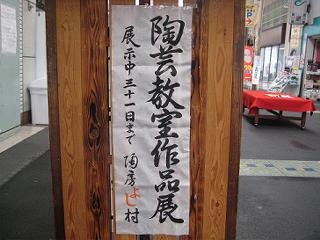 陶芸教室作品展
展示中三十一日まで 陶房よし村